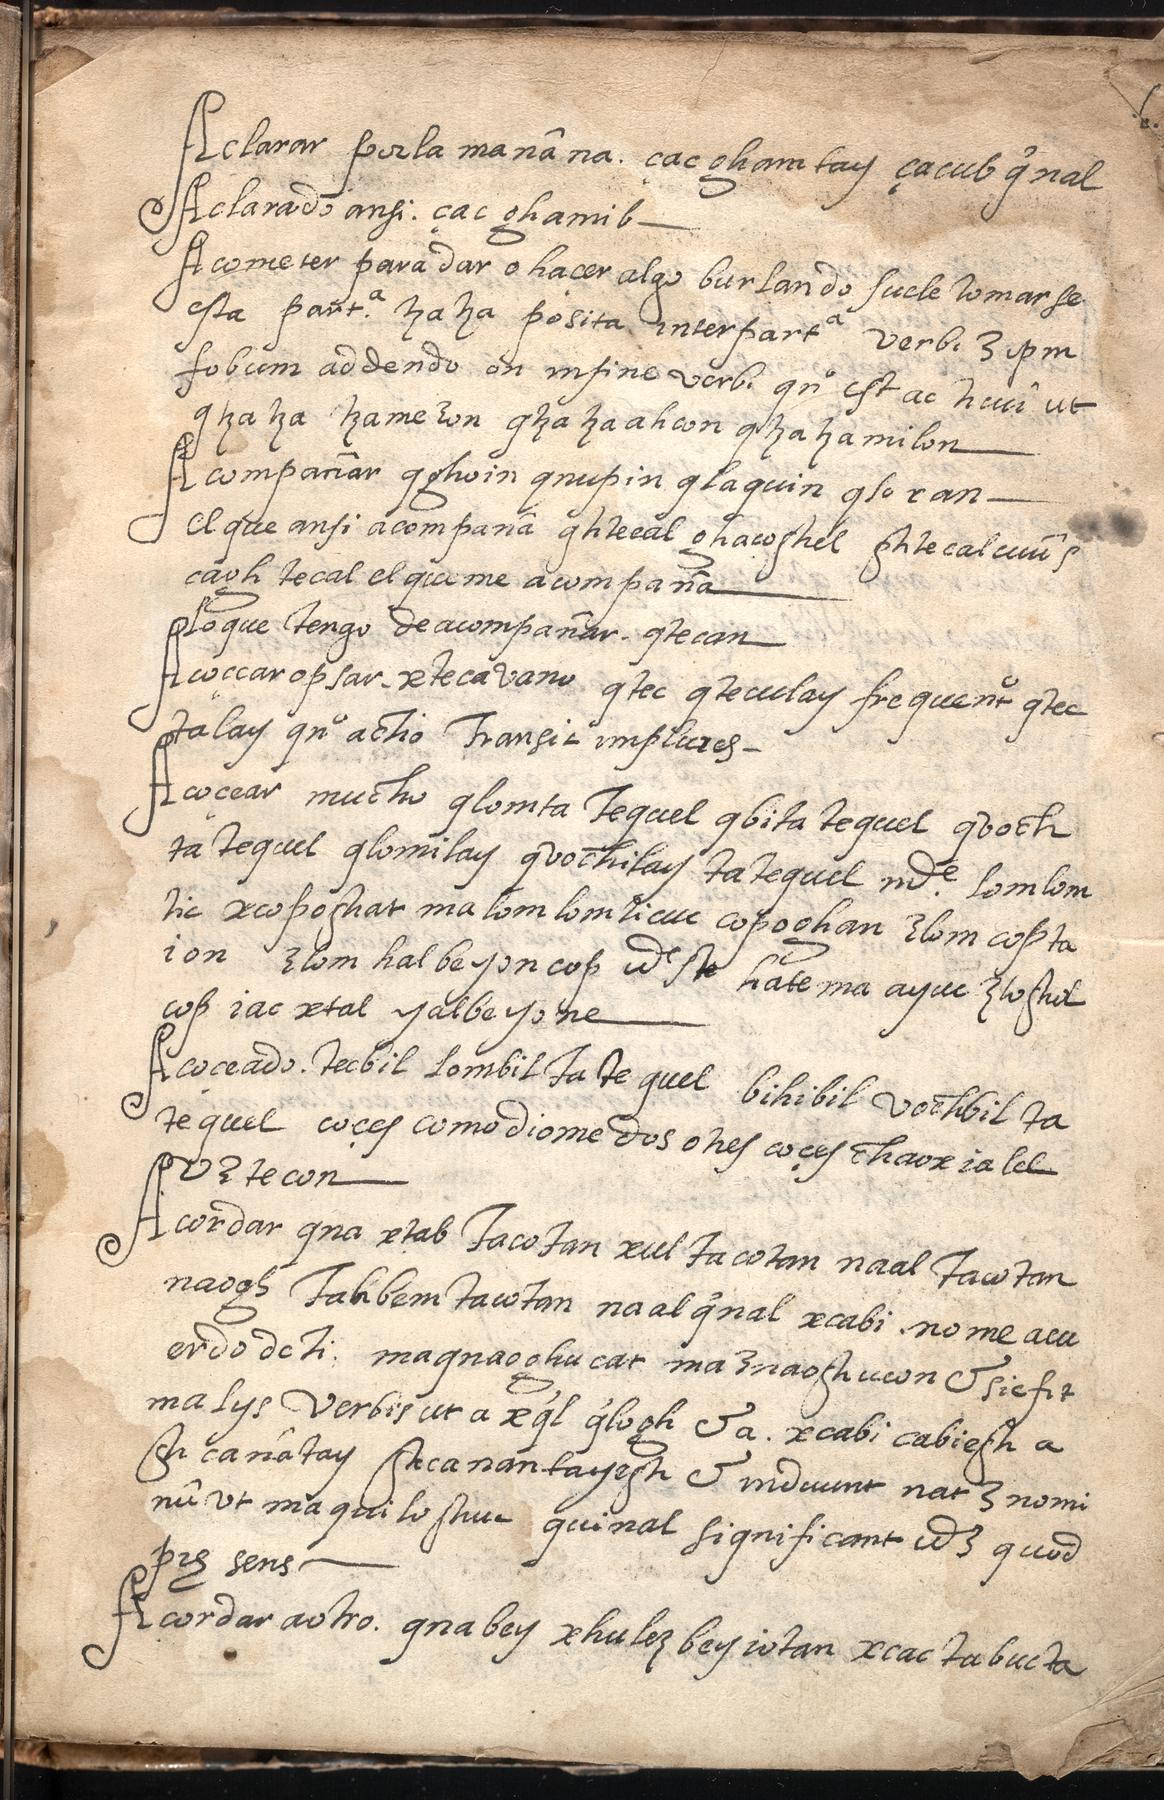 Aclarar por la manãna. çac ghamtay çacub q̃nal
Aclarado ansi. çac ghamib
Acometer para dar o hacer algo burlando suele tomarse
esta part.ª ꜩa ꜩa posita inter partª verbi ꜫ ipm
fobum addendo on in fine verbi qnº est ac huiĩ ut
qꜩa ꜩa ꜩameꜫon qꜩa ꜩaahcon qꜩa ꜩamilon
Acompañar qghoin qnupin qlaquin qloxan
el que ansi acompanã ghtecal ghacoghel ghtecalcuũs
cagh tecal el que me acompaña
lo que tengo de acompañar. qtecan
Acoccar opsar. xtecavano qtec qteculay frequentº qtec
talay qnº actio transit in plures
Acocear mucho qlomta tequel qbita tequel qvoch
ta tequel qlomilay qvochilay ta tequel ndᵉ. lomlom
tic xcopoghat ma lom lomticuc copoghan ꜫlom copta
ion ꜫlom halbeyon cop hate ma ayuc ꜫloghol
cop iac xtal yalbeyone
Acoceado. tecbil lombil ta te quel bihibil vochbil ta
te quel coçes como diomedos ohes coçes chaoxialel
vꜫtecon
Acordar qna xtab tacotan xul tacotan naal tacotan
naogh tahbem tacotan naal q̃nal xcabi. no me acu
erdo de ti. magnaoghucat ma ꜫnaoghucon & sic fit
malys verbis ut a xq̃l q̃logh &a. xcabi cabiegh a
gh canãtay ghcanantayegh & induunt nat ꜫ nomi
nũ vt maquiloghuc quinal significant idꜫ quod
pręsens
Acordar aotro. qnabey xhuleꜩbey iotan xcac tabucta